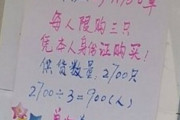 每人限购三只
凭本人身份证购买!
供货数量:2700只
2700÷3=900(人)